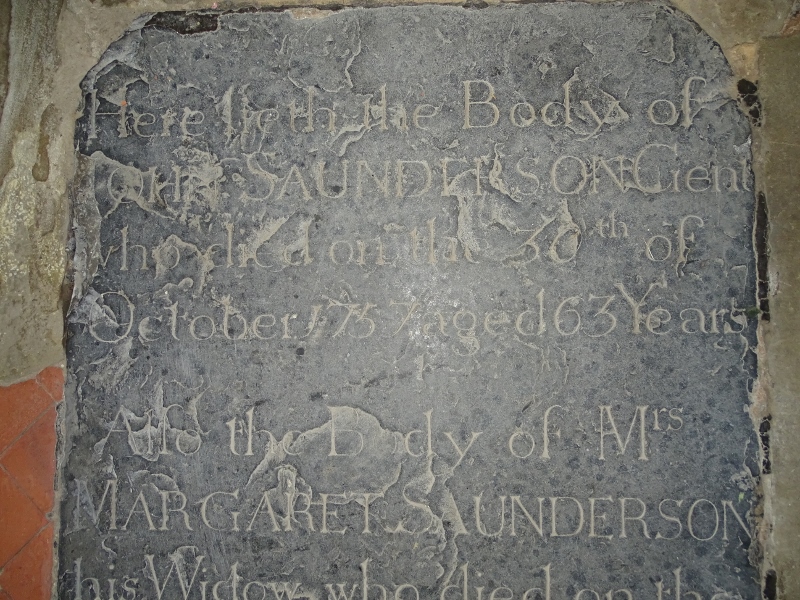 Here lieth the Body of
JOHN SAUNDERSON Gent
who died on the 30th of
October 1757 aged 63 Years
Also the Body of Mrs
MARGARET SAUNDERSON
his Widow who died on the